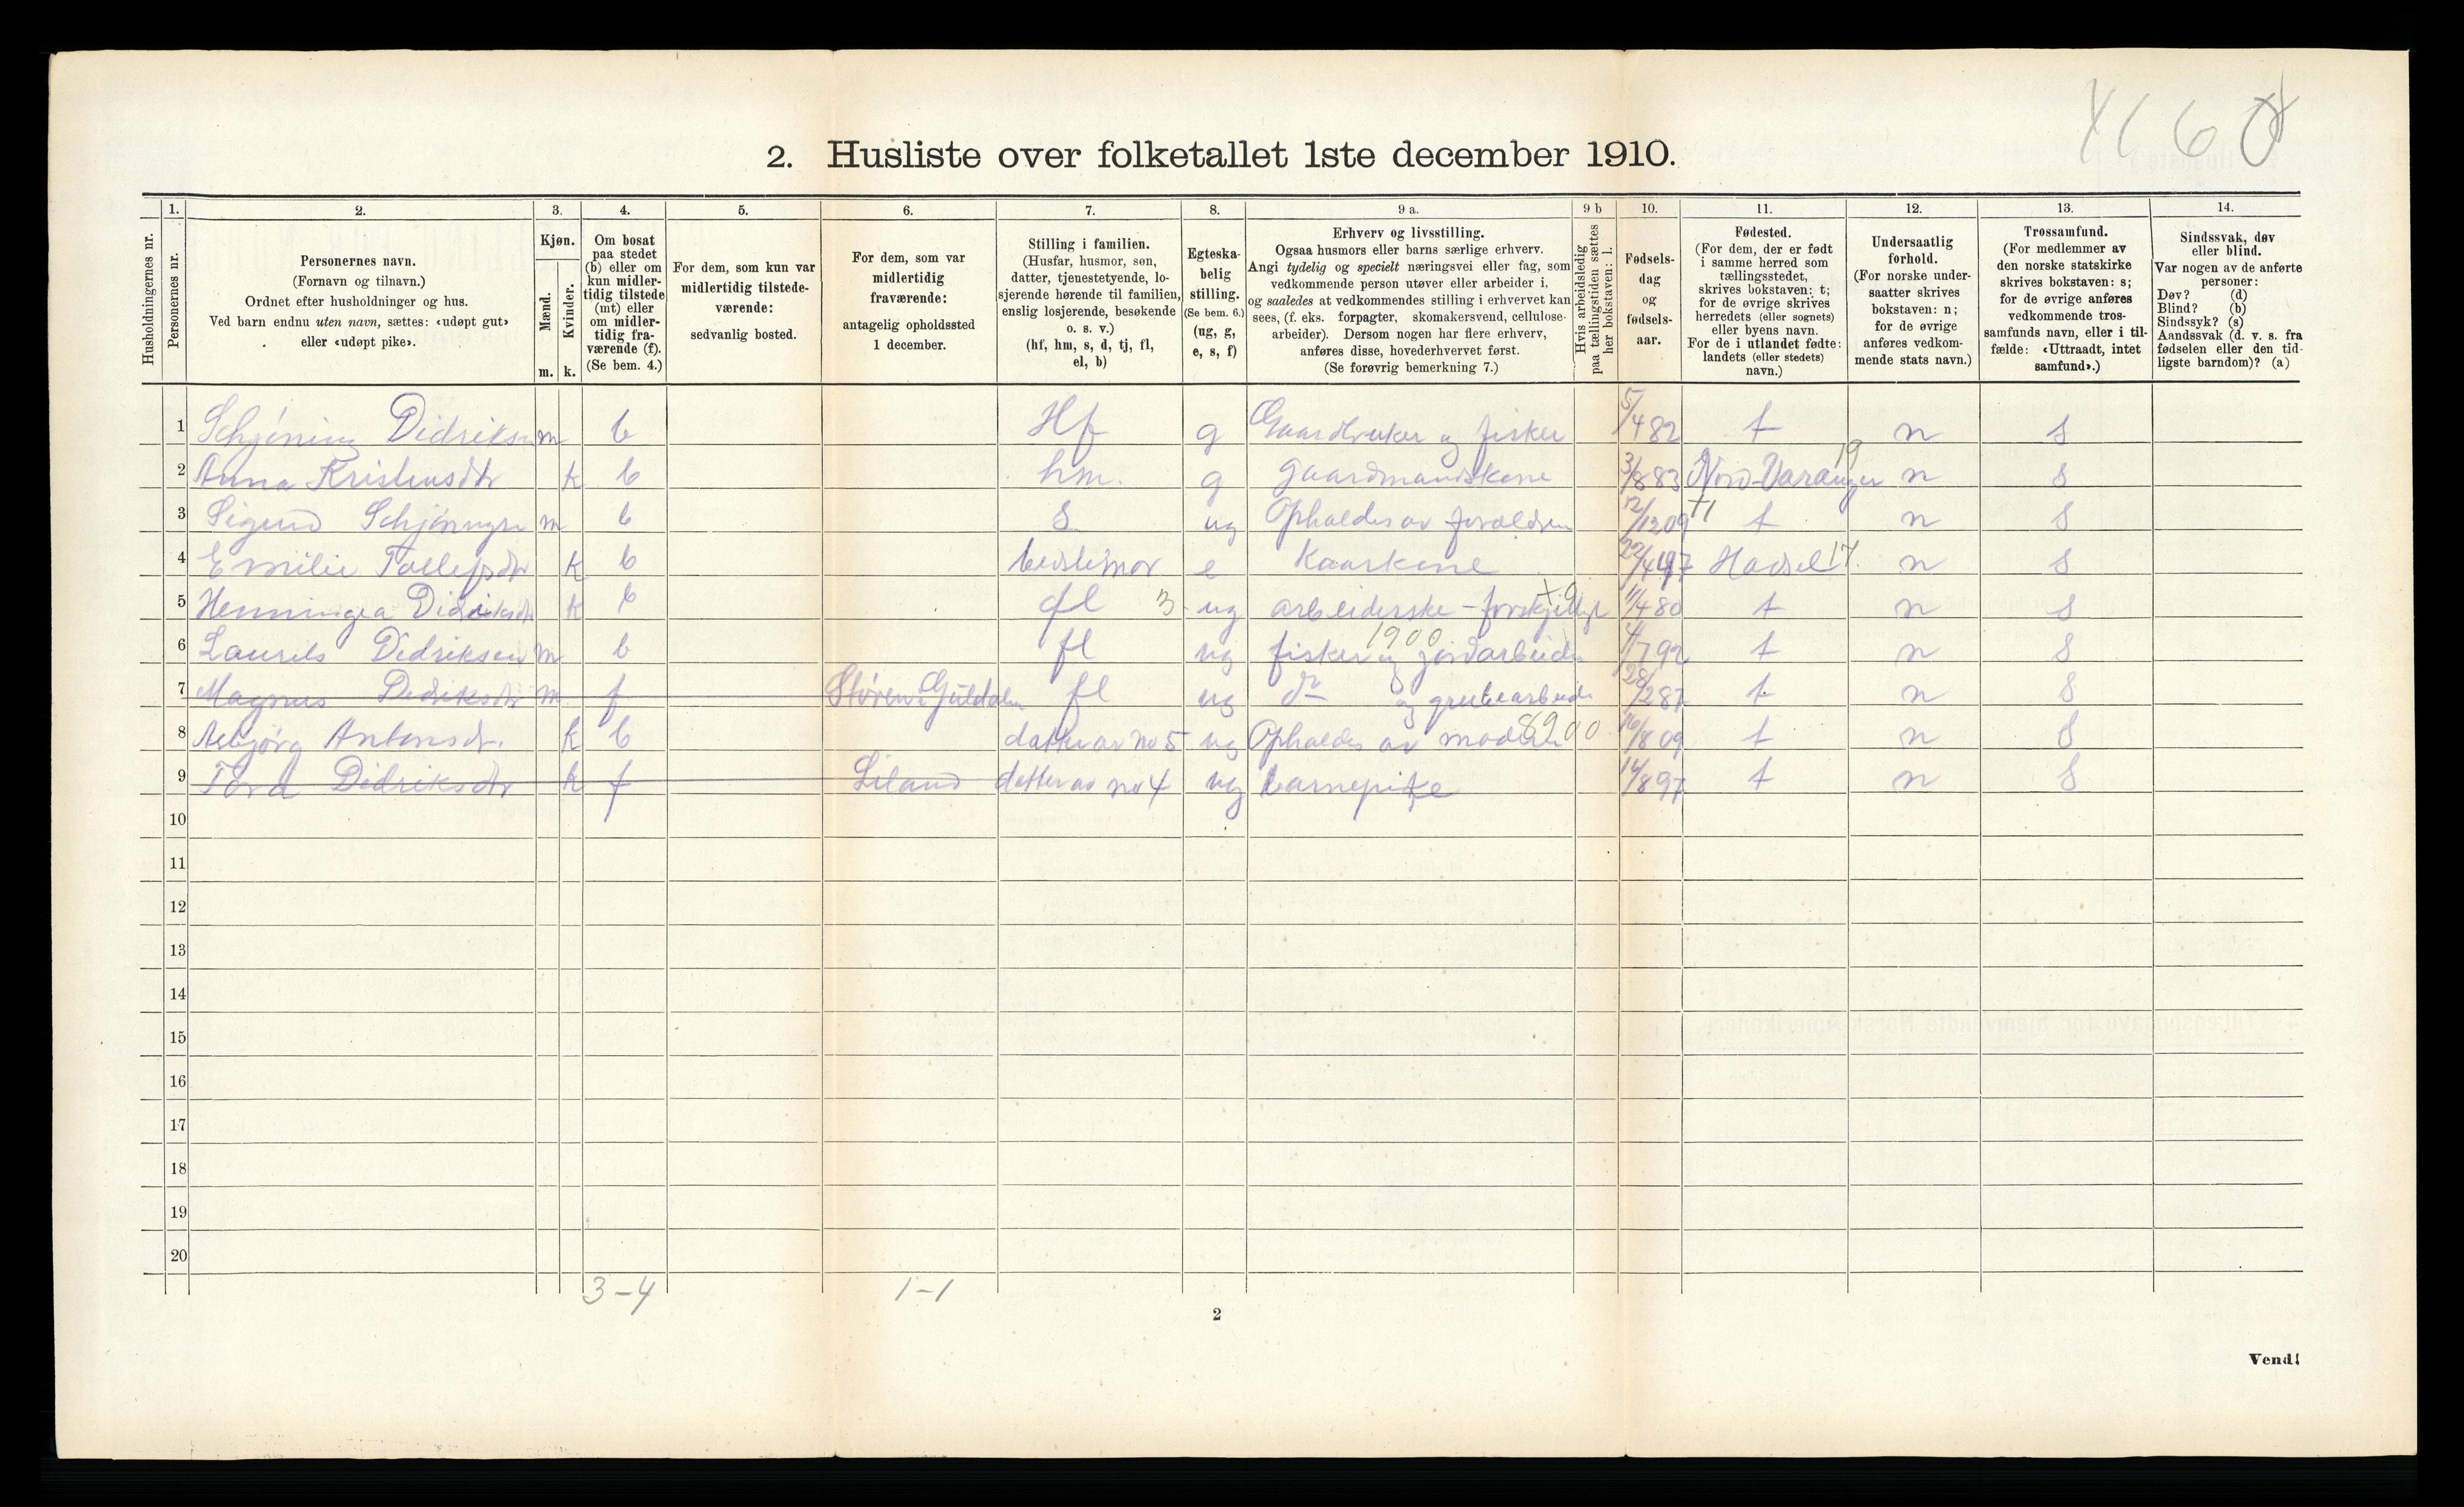 2. Husliste over folketallet 1ste december 1910.
Husholdningernes nr.
1. Personernes nr.
2. Personernes navn.
(Fornavn og tilnavn.)
Ordnet efter husholdninger og hus.
Ved barn endnu uten navn, sættes: «udøpt gut»
eller «udøpt pike».
3. Kjøn.
Mænd. m.
Kvinder. k.
4. Om bosat
paa stedet
(b) eller om
kun midler-
tidig tilstede
(mt) eller
om midler-
tidig fra-
værende (f).
(Se bem. 4.)
5. For dem, som kun var
midlertidig tilstede-
værende:
sedvanlig bosted.
6. For dem, som var
midlertidig
fraværende:
antagelig opholdssted
1 december.
7. Stilling i familien.
(Husfar, husmor, søn,
datter, tjenestetyende, lo-
sjerende hørende til familien,
enslig losjerende, besøkende
o. s. v.)
(hf, hm, s, d, tj, fl,
el, b)
8. Egteska-
belig
stilling.
(Se bem. 6.)
(ug, g,
e, s, f)
9 a. Erhverv og livsstilling.
Ogsaa husmors eller barns særlige erhverv.
Angi tydelig og specielt næringsvei eller fag, som
vedkommende person utøver eller arbeider i,
og saaledes at vedkommendes stilling i erhvervet kan
sees, (f. eks. forpagter, skomakersvend, cellulose-
arbeider). Dersom nogen har flere erhverv,
anføres disse, hovederhvervet først.
(Se forøvrig bemerkning 7.)
9 b Hvis arbeidsledig
paa tællingstiden sættes
her bokstaven: l.
10. Fødsels-
dag
og
fødsels-
aar.
11. Fødested.
(For dem, der er født
i samme herred som
tællingsstedet,
skrives bokstaven: t;
for de øvrige skrives
herredets (eller sognets)
eller byens navn.
For de i utlandet fødte:
landets (eller stedets)
navn.)
12. Undersaatlig
forhold.
(For norske under-
saatter skrives
bokstaven: n;
for de øvrige
anføres vedkom-
mende stats navn.)
13. Trossamfund.
(For medlemmer av
den norske statskirke
skrives bokstaven: s;
for de øvrige anføres
vedkommende tros-
samfunds navn, eller i til-
fælde: «Uttraadt, intet
samfund».)
14. Sindssvak, døv
eller blind.
Var nogen av de anførte
personer:
Døv? (d)
Blind? (b)
Sindssyk? (s)
Aandssvak (d. v. s. fra
fødselen eller den tid-
ligste barndom)? (a)
1 Schjöning Didriksen m b Hf g Gaardbruker og fisker 5/4 82 t n s
2 Anna Kristensdtr k b hm. g gaardmandskone 3/8 83 Nord-Varanger 19 n s
3 Sigurd Schjöningsen m b s ug Opholdes av forældren 12/12 09 t n s
4 Emilie Tollefsdtr k b bedstemor e Kaarkone 22/4 47 Hadsel 17 n s
5 Henningea Didriksdtr k b fl 3 ug arbeiderske - forskjellig 11/4 80 t n s
6 Laurits Didriksen m b fl ug fisker og jordarbeider 1900 4/7 92 t n s
7 Magnus Didriksen m f Støren i Guldalen fl ug do og grubearbeide 28/2 87 t n s
8 Asbjørg Antonsdtr. k b datter av no 5 ug Opholdes av moderen 8900 16/8 09 t n s
9 Tora Didriksdtr k f Liland datter av no 4 ug barnepike 14/8 97 t n s
10
11
12
13
14
15
16
17
18
19
20
3-4 1-1
2
Vend!